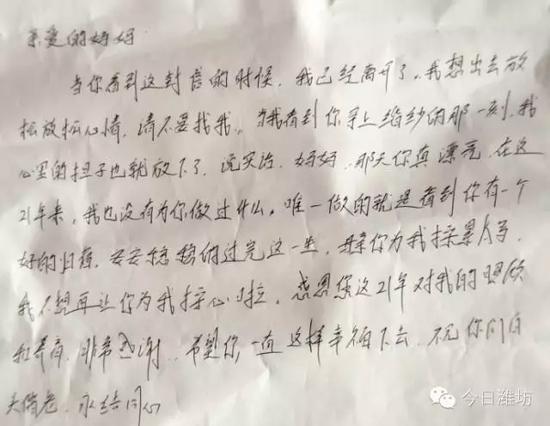 亲爱的妈妈
当你看到这封信的时候,我已经离开了,我想出去放
松放松心情,请不要找我。当我看到你穿上婚纱的那一刻,我
心里的担子也就放下了,说实话,妈妈,那天你真漂亮,在这
21年来,我也没有为你做过什么。唯一做的就是看到你有一个
好的归宿,安安稳稳的过完这一生,你为我操累
我不想再让你为我操心啦,感恩您这21年对我的照顾
和养育,非常感谢..希望你,一直这样幸福下去,祝你们白
头偕老,永结同心
今日潍坊